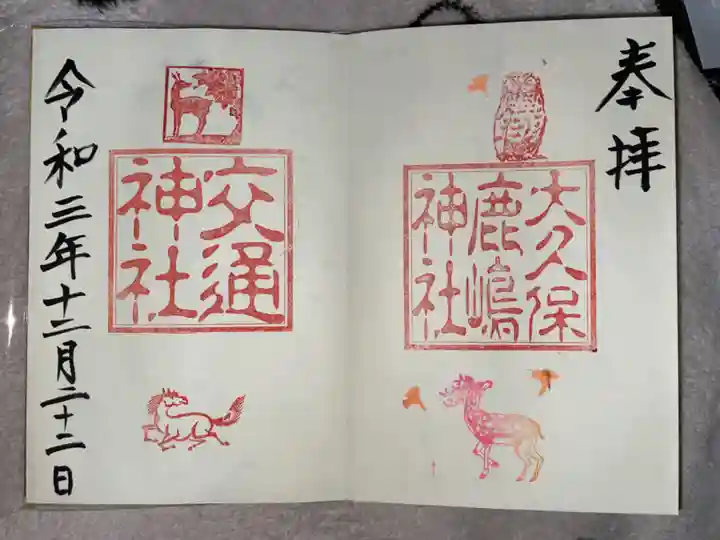 奉拝
大久保
鹿嶋
神社
交通
神社
令和三年十二月二十二日